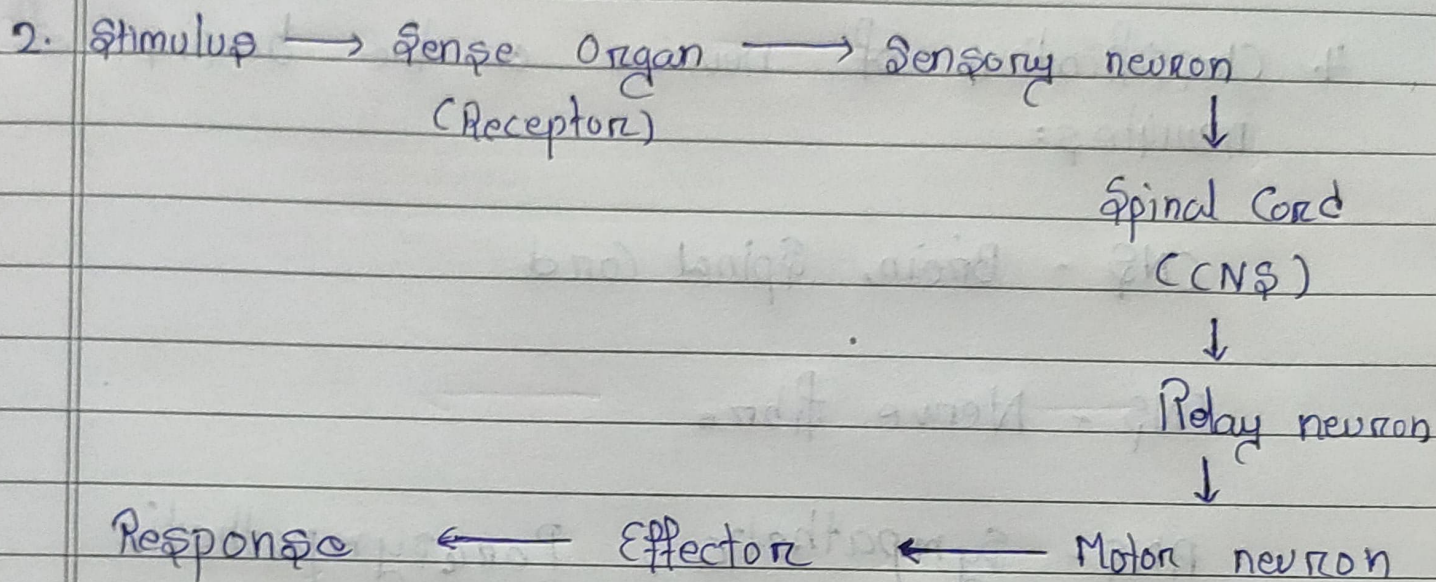 2. Stimulus → Sense Organ → Sensory neuron
(Receptor)
↓
Spinal Cord
(CNS)
↓
Relay neuron
↓
Response ← Effector ← Motor neuron